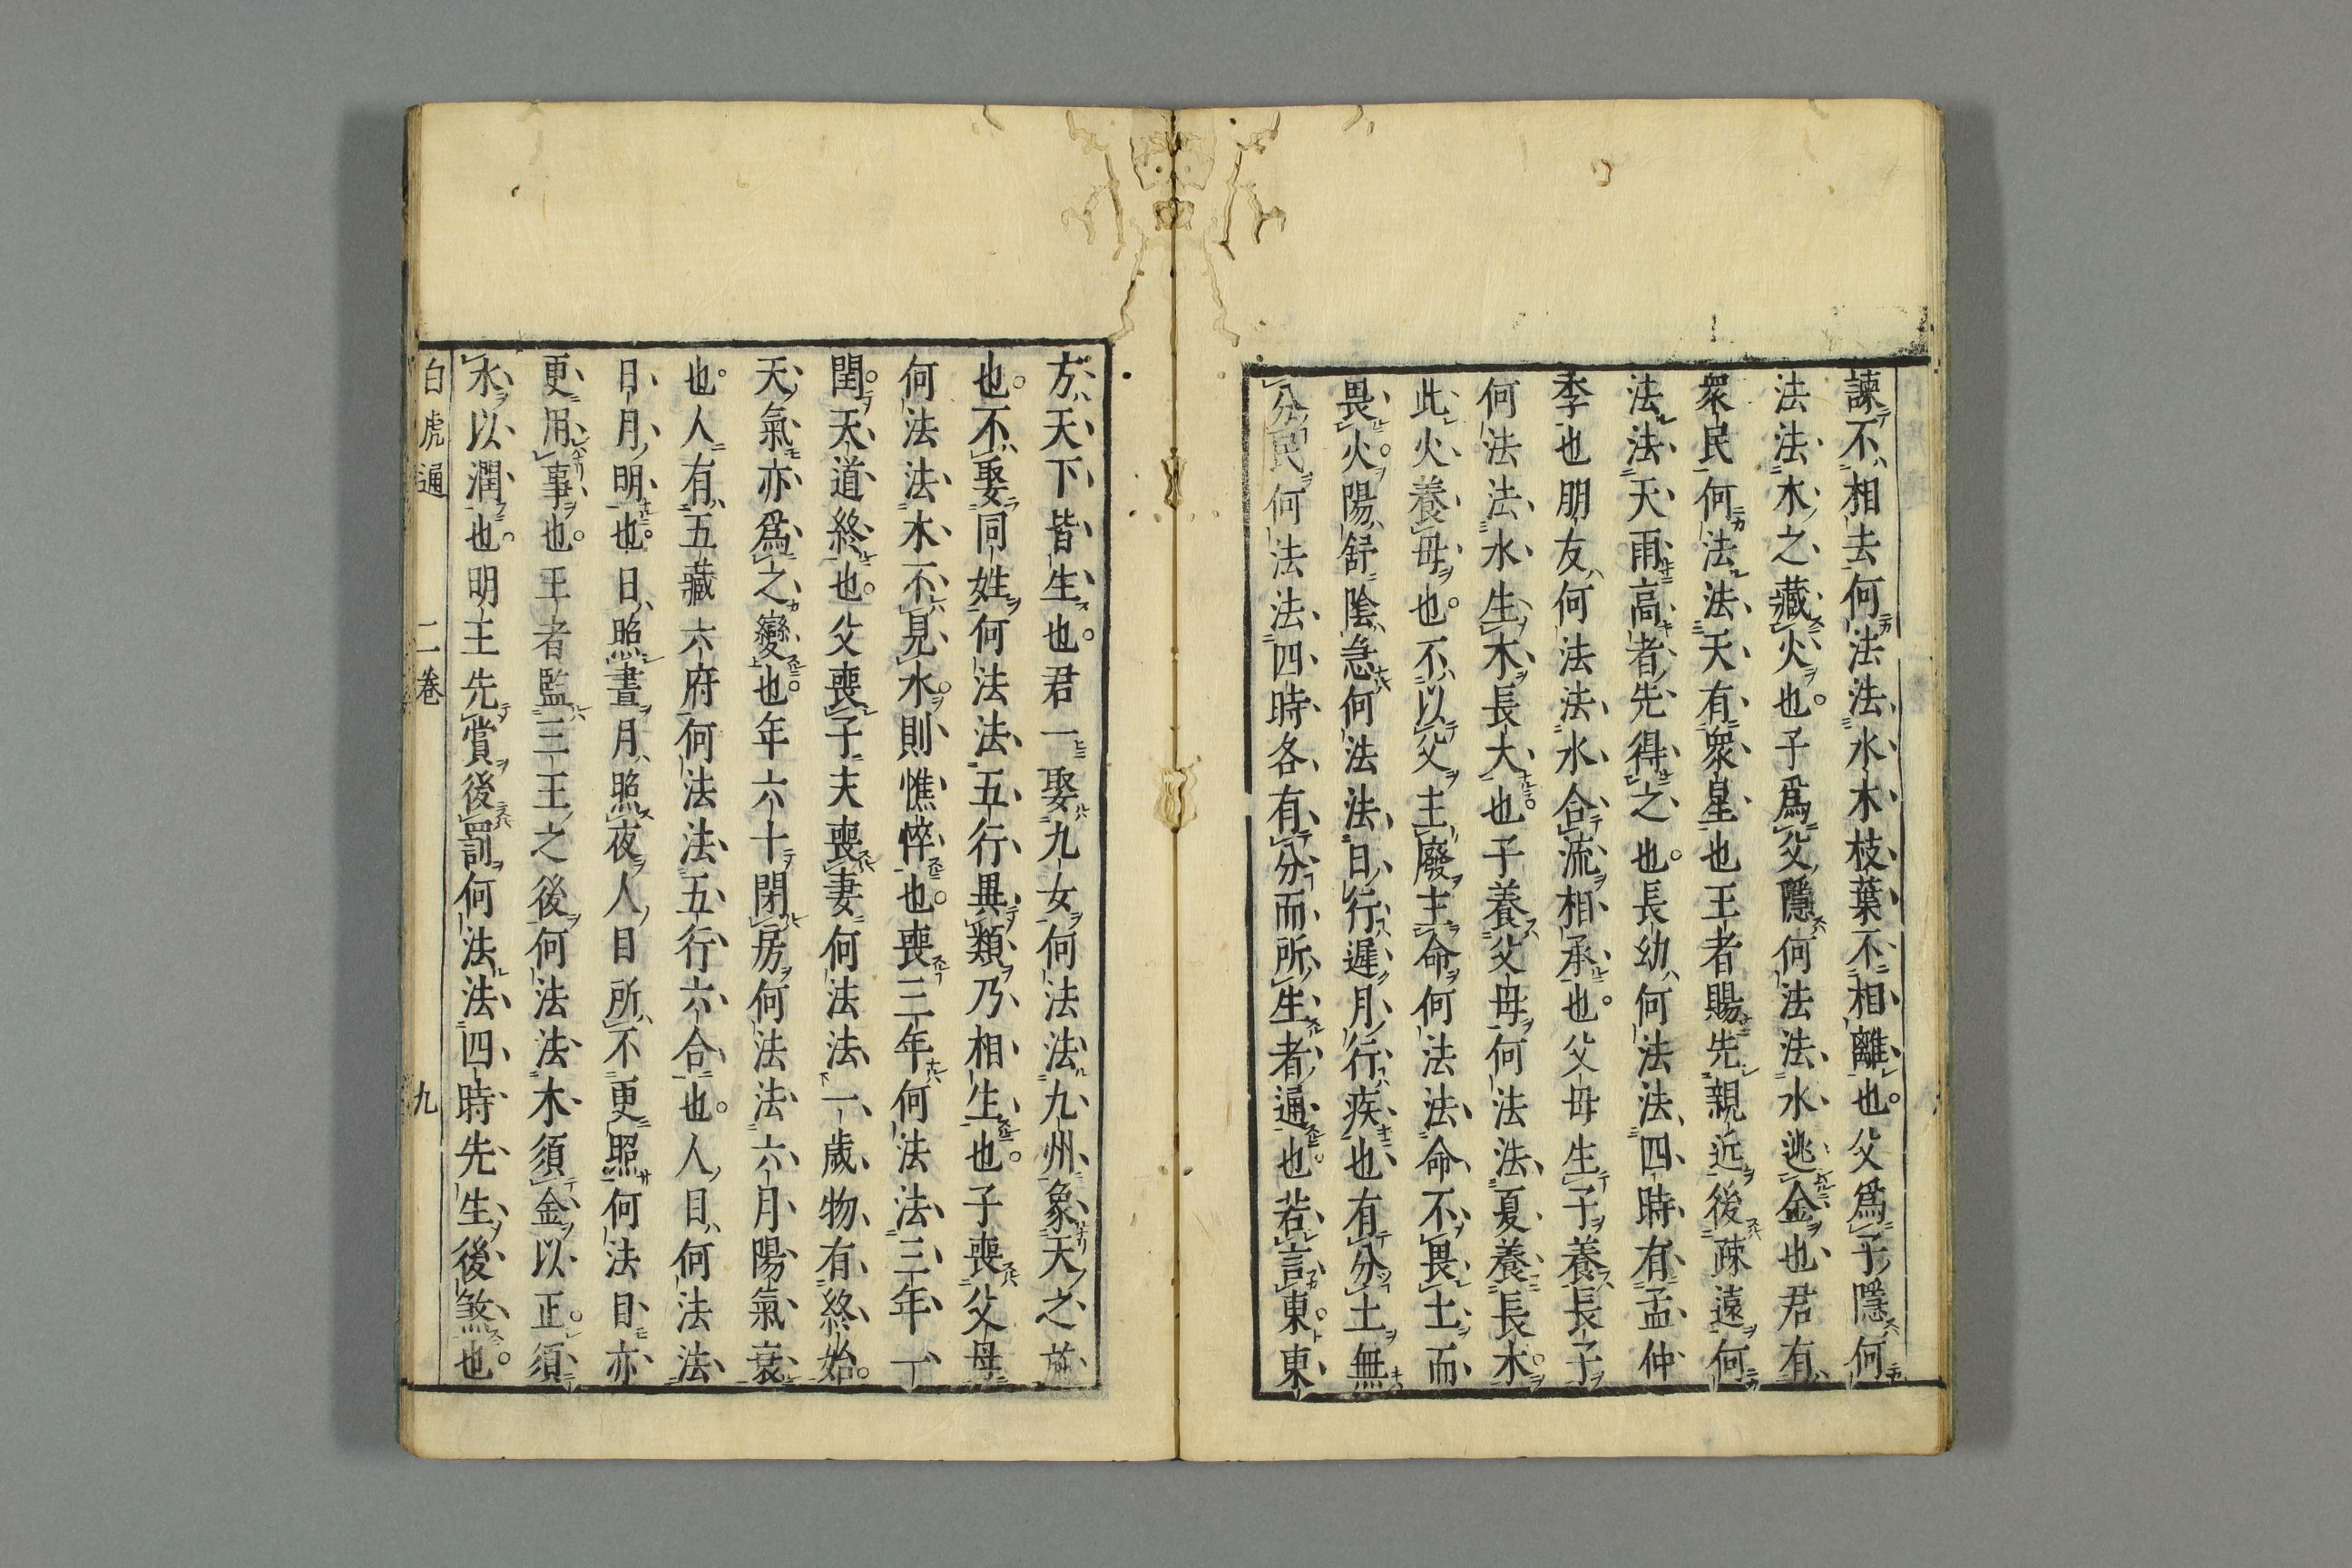 諫不相去何法法水木枝葉不相離也父爲子隱何
法法木之藏火也子爲父隱何法法水逃金也君有
衆民何法法天有衆星也王者賜先親近後疎遠何
法法天雨高者先得之也長幼何法法四時有孟仲
季也朋友何法法水合流相承也父母生子養長子
何法法水生木長大也子養父母何法法夏養長木
此火養母也不以父主廢主命何法法命不畏土而
畏火陽舒陰急何法法日行遲月行疾也有分土無
分民何法法四時各有分而所生者通也若言東東
方天下皆生也君一娶九女何法法九州象天之施
也不娶同姓何法法五行異類乃相生也子喪父母
何法法木不見水則憔悴也喪三年何法法三年一
閏天道終也父喪子夫喪妻何法法一歲物有終始
天氣亦爲之變也年六十閉房何法法六月陽氣衰
也人有五藏六府何法法五行六合也人目何法法
日月明也日照晝月照夜人目所不更照何法目亦
更用事也王者監三王之後何法法木須金以正須
水以潤也明王先賞後罰何法法四時先生後煞也
白虎通 二卷 九